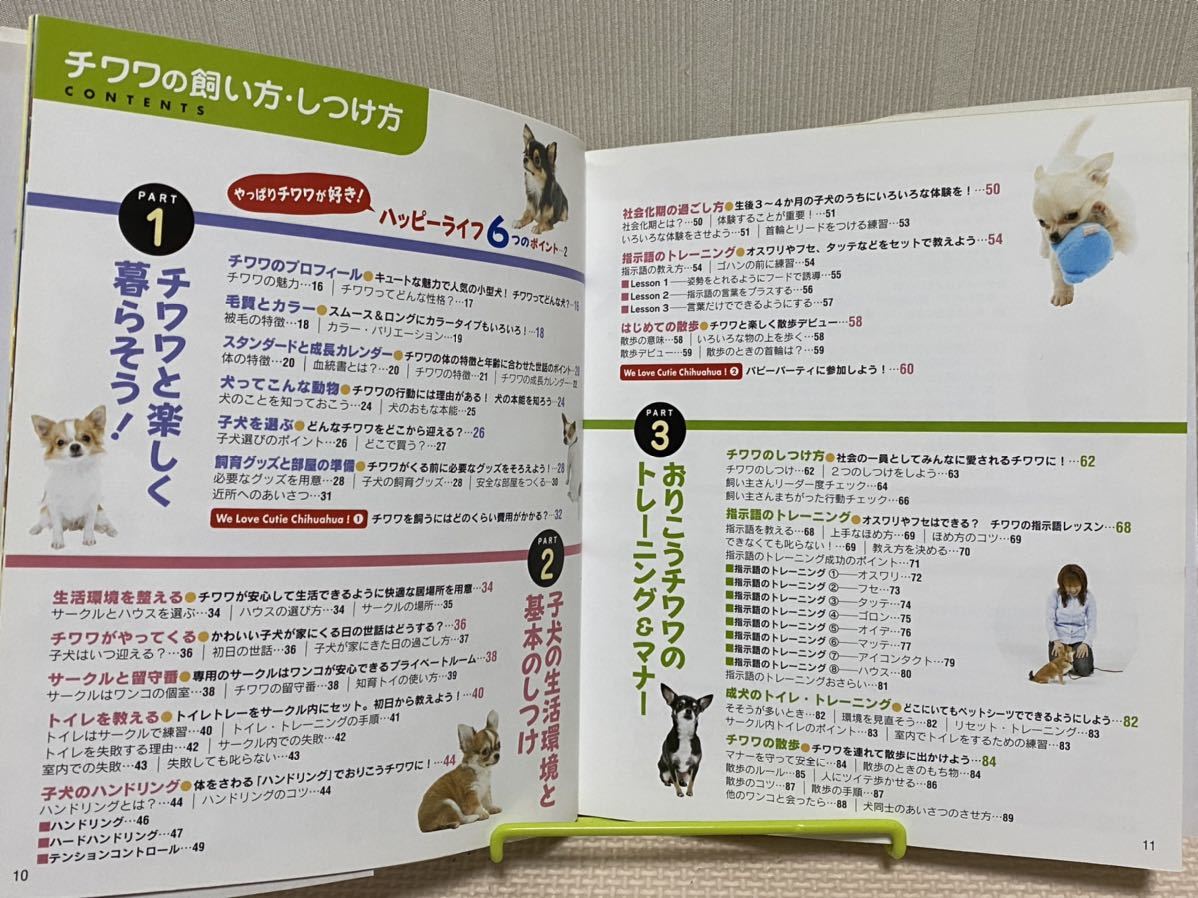 チワワの飼い方・しつけ方
CONTENTS
PART
1
チワワと楽しく
暮らそう!
やっぱりチワワが好き!
ハッピーライフ6つのポイント…2
チワワのプロフィール●キュートな魅力で人気の小型犬! チワワってどんな犬?…16
チワワの魅力…16│チワワってどんな性格?…17
毛質とカラー●スムース&ロングにカラータイプもいろいろ!…18
被毛の特徴…18│カラー・バリエーション…19
スタンダードと成長カレンダー●チワワの体の特徴と年齢に合わせた世話のポイント…20
体の特徴…20│血統書とは?…20│チワワの特徴…21│チワワの成長カレンダー…22
犬ってこんな動物●チワワの行動には理由がある! 犬の本能を知ろう…24
犬のことを知っておこう…24│犬のおもな本能…25
子犬を選ぶ●どんなチワワをどこから迎える?…26
子犬選びのポイント…26│どこで買う?…27
飼育グッズと部屋の準備●チワワがくる前に必要なグッズをそろえよう!…28
必要なグッズを用意…28│子犬の飼育グッズ…28│安全な部屋をつくる…30
近所へのあいさつ…31
We Love Cutie Chihuahua! ① チワワを飼うにはどのくらい費用がかかる?…32
PART
2
子犬の生活環境と
基本のしつけ
生活環境を整える●チワワが安心して生活できるように快適な居場所を用意…34
サークルとハウスを選ぶ…34│ハウスの選び方…34│サークルの場所…35
チワワがやってくる●かわいい子犬が家にくる日の世話はどうする?…36
子犬はいつ迎える?…36│初日の世話…36│子犬が家にきた日の過ごし方…37
サークルと留守番●専用のサークルはワンコが安心できるプライベートルーム…38
サークルはワンコの個室…38│チワワの留守番…38│知育トイの使い方…39
トイレを教える●トイレトレーをサークル内にセット。初日から教えよう!…40
トイレはサークルで練習…40│トイレ・トレーニングの手順…41
トイレを失敗する理由…42│サークル内での失敗…42
室内での失敗…43│失敗しても叱らない…43
子犬のハンドリング●体をさわる「ハンドリング」でおりこうチワワに!…44
ハンドリングとは?…44│ハンドリングのコツ…44
■ハンドリング…46
■ハードハンドリング…47
■テンションコントロール…49
10
社会化期の過ごし方●生後3〜4か月の子犬のうちにいろいろな体験を!…50
社会化期とは?…50│体験することが重要!…51
いろいろな体験をさせよう…51│首輪とリードをつける練習…53
指示語のトレーニング●オスワリやフセ、タッテなどをセットで教えよう…54
指示語の教え方…54│ゴハンの前に練習…54
■Lesson 1――姿勢をとれるようにフードで誘導…55
■Lesson 2――指示語の言葉をプラスする…56
■Lesson 3――言葉だけでできるようにする…57
はじめての散歩●チワワと楽しく散歩デビュー…58
散歩の意味…58│いろいろな物の上を歩く…58
散歩デビュー…59│散歩のときの首輪は?…59
We Love Cutie Chihuahua! ② パピーパーティに参加しよう!…60
PART
3
おりこうチワワの
トレーニング&マナー
チワワのしつけ方●社会の一員としてみんなに愛されるチワワに!…62
チワワのしつけ…62│2つのしつけをしよう…63
飼い主さんリーダー度チェック…64
飼い主さんまちがった行動チェック…66
指示語のトレーニング●オスワリやフセはできる? チワワの指示語レッスン…68
指示語を教える…68│上手なほめ方…69│ほめ方のコツ…69
できなくても叱らない!…69│教え方を決める…70
指示語のトレーニング成功のポイント…71
■指示語のトレーニング ①――オスワリ…72
■指示語のトレーニング ②――フセ…73
■指示語のトレーニング ③――タッテ…74
■指示語のトレーニング ④――ゴロン…75
■指示語のトレーニング ⑤――オイデ…76
■指示語のトレーニング ⑥――マッテ…77
■指示語のトレーニング ⑦――アイコンタクト…79
■指示語のトレーニング ⑧――ハウス…80
■指示語のトレーニングおさらい…81
成犬のトイレ・トレーニング●どこにいてもペットシーツでできるようにしよう…82
そそうが多いとき…82│環境を見直そう…82│リセット・トレーニング…83
サークル内トイレのポイント…83│室内でトイレをするための練習…83
チワワの散歩●チワワを連れて散歩に出かけよう!…84
マナーを守って安全に…84│散歩のときのもち物…84
散歩のルール…85│人にツイテ歩かせる…86
散歩のコツ…87│散歩の手順…87
他のワンコと会ったら…88│犬同士のあいさつのさせ方…89
11